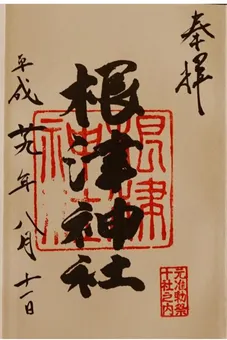 奉拝
根津神社
平成廿九年八月十一日
根津
神社
元准勅祭
十社之内